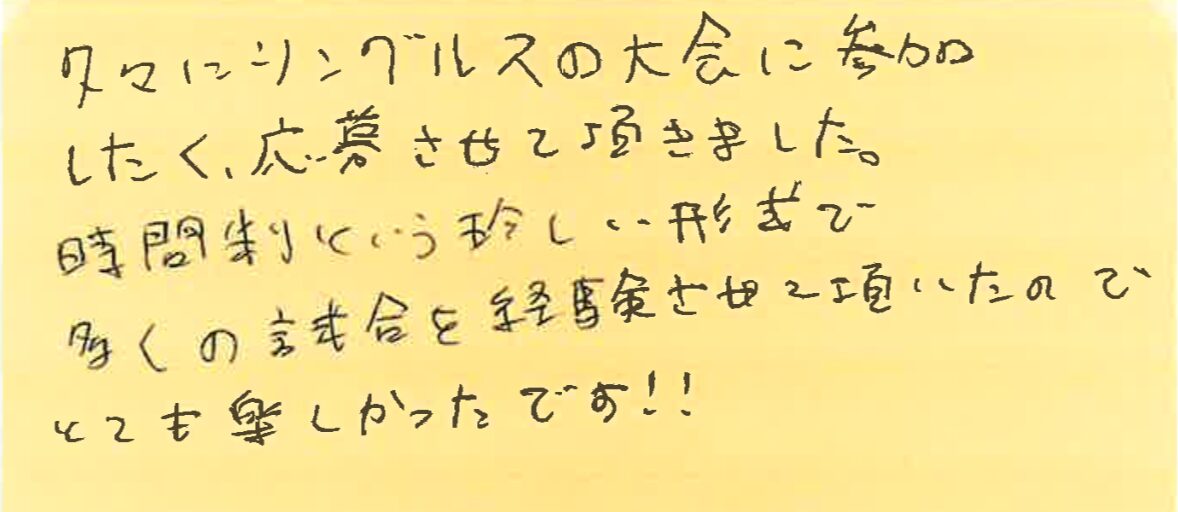 久々にシングルスの大会に参加
したく、応募させて頂きました。
時間制という珍しい形式で
多くの試合を経験させて頂いたので
とても楽しかったです!!